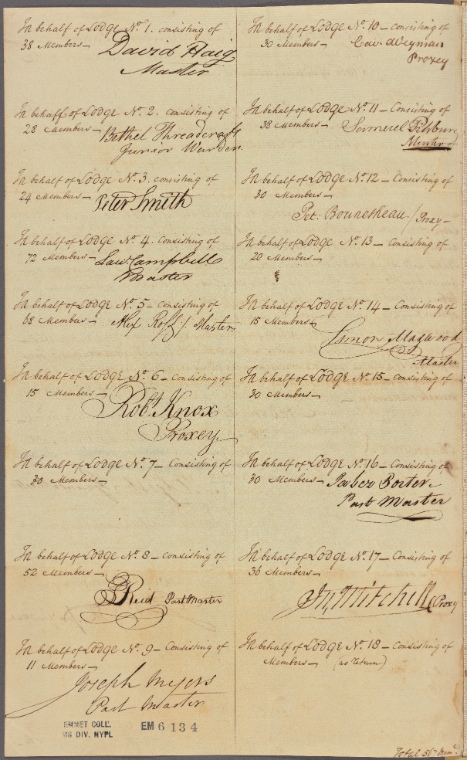 In behalf of Lodge No. 1. consisting of
38 Members—
David Haig
Master
In behalf of Lodge No. 2. consisting of
28 Members—
Bethel Threadcraft
Junior Warden
In behalf of Lodge No. 3. consisting of
24 Members—
Peter Smith
In behalf of Lodge No. 4. Consisting of
72 Members—
Law Campbell
Master
In behalf of Lodge No. 5— consisting of
68 Members—
Alex Ross / Master
In behalf of Lodge No. 6— Consisting of
15 Members—
Robt. Knox
Proxey
In behalf of Lodge No. 7— Consisting of
30 Members—
In behalf of Lodge No. 8— Consisting of
52 Members—
Reid Past Master
In behalf of Lodge No. 9— Consisting of
11 Members—
Joseph Meyers
Past Master
EMMET COLL.
MS DIV. NYPL
EM 6134
In behalf of Lodge No. 10— Consisting of
30 Members—
Edw. Weyman
Proxey
In behalf of Lodge No. 11— Consisting of
38 Members—
Samuel Pilsbury
In behalf of Lodge No. 12— Consisting of
30 Members—
Pet. Bounetheau / Proxy—
In behalf of Lodge No. 13— Consisting of
20 Members—
In behalf of Lodge No. 14— Consisting of
15 Members—
Simon Magwood
Master
In behalf of Lodge No. 15— Consisting of
30 Members—
In behalf of Lodge No. 16— Consisting of
30 Members—
Job Porter
Past Master
In behalf of Lodge No. 17— Consisting of
36 Members—
Jn. Mitchell Proxy
In behalf of Lodge No. 18— Consisting of
Members— (no return)
Total